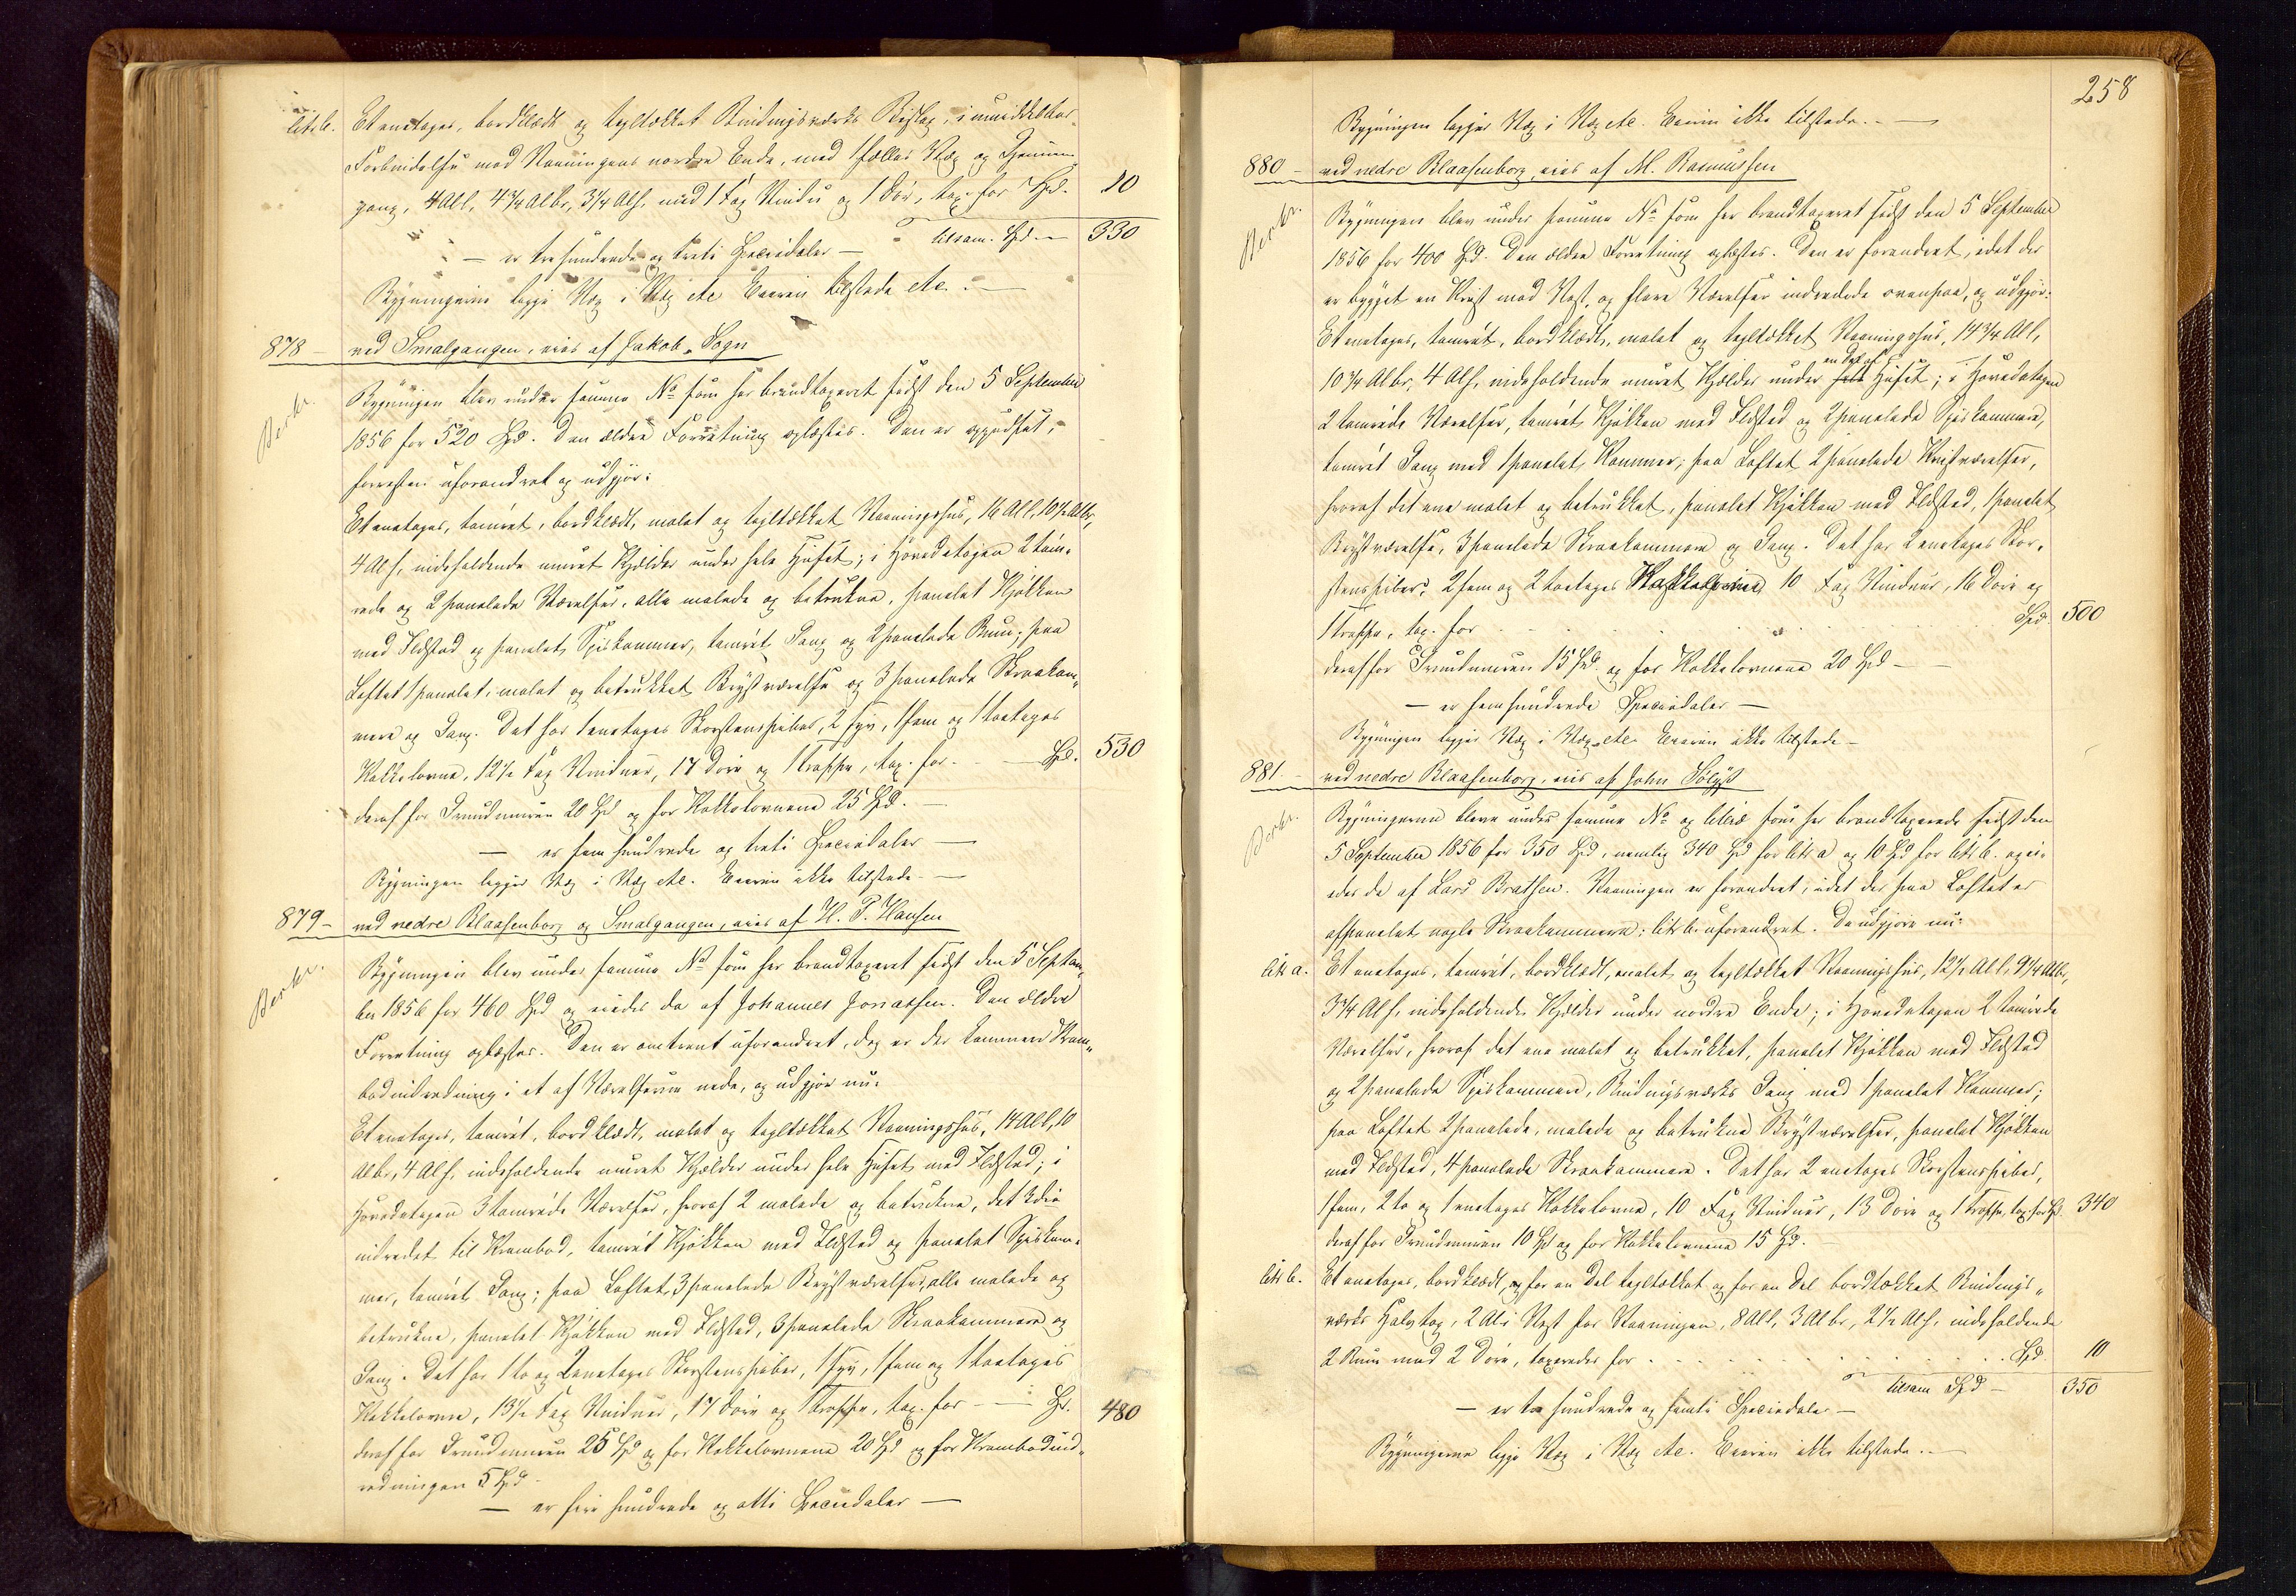 litr b. Et enetages, bordklædt og tegltækket Bindingsværks Bislag, i umiddelbar
Forbindelse med Vaaningens nordre Ende, med 1 fælles Væg og Gjennem-
gang, 4 All, 4 3/4 Albr, 3 1/4 Alh, med 1 Fag Vindu og 1 Dør, tax. for Spd. 10
tilsam. Spd. — 330
— er tre hundrede og treti Speciedaler —
Bygningerne ligge Væg i Væg etc Eieren tilstede etc. —
878 — ved Smalgangen, eies af Jakob Sogn
Berkr.
Bygningen blev under samme No som her brandtaxeret sidst den 5 September
1856 for 520 Spd. Den ældre Forretning oplæstes. Den er oppudset,
forresten uforandret og udgjør:
Et enetages, tømret, bordklædt, malet og tegltækket Vaaningshus, 16 All, 10 1/2 Albr,
4 Alh, indeholdende muret Kjelder under hele Huset; i Hovedetagen 2 tøm-
rede og 2 panelede Værelser, alle malede og betrukne, panelet Kjøkken
med Ildsted og panelet Spiskammer, tømret Gang og 2 panelede Rum; paa
Loftet 1 panelet, malet og betrukket Brystværelse og 3 panelede Skraakam-
mere og Gang. Det har 1 enetages Skorstenspibe, 2 syv, 1 fem og 1 toetages
Kakkelovne, 12 1/2 Fag Vinduer, 17 Døre og 1 Trappe, tax. for — Spd. 530
deraf for Grundmuren 20 Spd og for Kakkelovnene 25 Spd. —
— er fem hundrede og treti Speciedaler —
Bygningen ligger Væg i Væg etc. Eieren ikke tilstede —
879 — ved nedre Blaasenborg og Smalgangen, eies af H. P. Hansen
Berkr.
Bygningen blev under samme No som her brandtaxeret sidst den 5 Septem-
ber 1856 for 460 Spd og eiedes da af Johannes Jonassen. Den ældre
Forretning oplæstes. Den er omtrent uforandret, dog er der kommen Kram-
bodindredning i et af Værelserne nede, og udgjør nu:
Et enetages, tømret, bordklædt, malet og tegltækket Vaaningshus, 14 All, 10
Albr, 4 Alh, indeholdende muret Kjelder under hele Huset med Ildsted; i
Hovedetagen 3 tømrede Værelser, hvoraf 2 malede og betrukne, det 3die
indredet til Krambod, tømret Kjøkken med Ildsted og panelet Spiskam-
mer, tømret Gang; paa Loftet 3 panelede Brystværelser, alle malede og
betrukne, panelet Kjøkken med Ildsted, 3 panelede Skraakammere og
Gang. Det har 1 to og 2 enetages Skorstenspiber, 1 syv, 1 fem og 1 toetages
Kakkelovne, 13 1/2 Fag Vinduer, 17 Døre og 1 Trappe, tax. for — Spd. 480
deraf for Grundmuren 25 Spd og for Kakkelovnene 20 Spd og for Krambodind-
redningen 5 Spd —
— er fire hundrede og otti Speciedaler —
258
Bygningen ligger Væg i Væg etc. Eieren ikke tilstede. —
880 — ved nedre Blaasenborg, eies af M. Rasmussen
Berkr.
Bygningen blev under samme No som her brandtaxeret sidst den 5 September
1856 for 400 Spd. Den ældre Forretning oplæstes. Den er forandret, idet der
er bygget en Kvist mod Vest, og flere Værelser indredede ovenpaa, og udgjør:
Et enetages, tømret, bordklædt, malet og tegltækket Vaaningshus, 14 3/4 All,
10 3/4 Albr, 4 Alh, indeholdende muret Kjelder under hele en Del af Huset; i Hovedetagen
2 tømrede Værelser, tømret Kjøkken med Ildsted og 2 panelede Spiskammere,
tømret Gang med 1 panelet Kammer; paa Loftet 2 panelede Kvistværelser,
hvoraf det ene malet og betrukket, panelet Kjøkken med Ildsted, 1 panelet
Brystværelse, 3 panelede Skraakammere og Gang. Det har 2 enetages Skor-
stenspiber, 2 fem og 2 toetages Kakkelovne, 10 Fag Vinduer, 16 Døre og
1 Trappe, tax. for . . . Spd. 500
deraf for Grundmuren 15 Spd og for Kakkelovnene 20 Spd —
— er femhundrede Speciedaler —
Bygningen ligger Væg i Væg etc. Eieren ikke tilstede —
881 — ved nedre Blaasenborg, eies af John Sølyst
Berkr.
Bygningerne bleve under samme No og literæ som her brandtaxerede sidst den
5 September 1856 for 350 Spd, nemlig 340 Spd for litr a og 10 Spd for litr b. og ei-
edes da af Lars Brathen. Vaaningen er forandret, idet der paa Loftet er
afpanelet nogle Skraakammere; litr b. uforandret. De udgjøre nu:
litr a. Et enetages, tømret, bordklædt, malet og tegltækket Vaaningshus, 12 1/2 All, 9 1/4 Albr,
3 3/4 Alh, indeholdende Kjelder under nordre Ende; i Hovedetagen 2 tømrede
Værelser, hvoraf det ene malet og betrukket, panelet Kjøkken med Ildsted
og 2 panelede Spiskammere, Bindingsværks Gang med 1 panelet Kammer;
paa Loftet 2 panelede, malede og betrukne Brystværelser, panelet Kjøkken
med Ildsted, 4 panelede Skraakammere. Det har 2 enetages Skorstenspiber,
1 fem, 2 to og 1 enetages Kakkelovne, 10 Fag Vinduer, 13 Døre og 1 Trappe, tax. for Spd. 340
deraf for Grundmuren 10 Spd og for Kakkelovnene 15 Spd.
litr b. Et enetages, bordklædt, og for en Del tegltækket og for en Del bordtækket Bindings-
værks Halvtag, 2 Al. i Vest for Vaaningen, 8 All, 3 Albr, 2 1/2 Alh, indeholdende
2 Rum med 2 Døre, taxeredes for . . . Spd. 10
tilsam Spd — 350
— er tre hundrede og femti Speciedaler —
Bygningerne ligge Væg i Væg etc. Eieren ikke tilstede. —